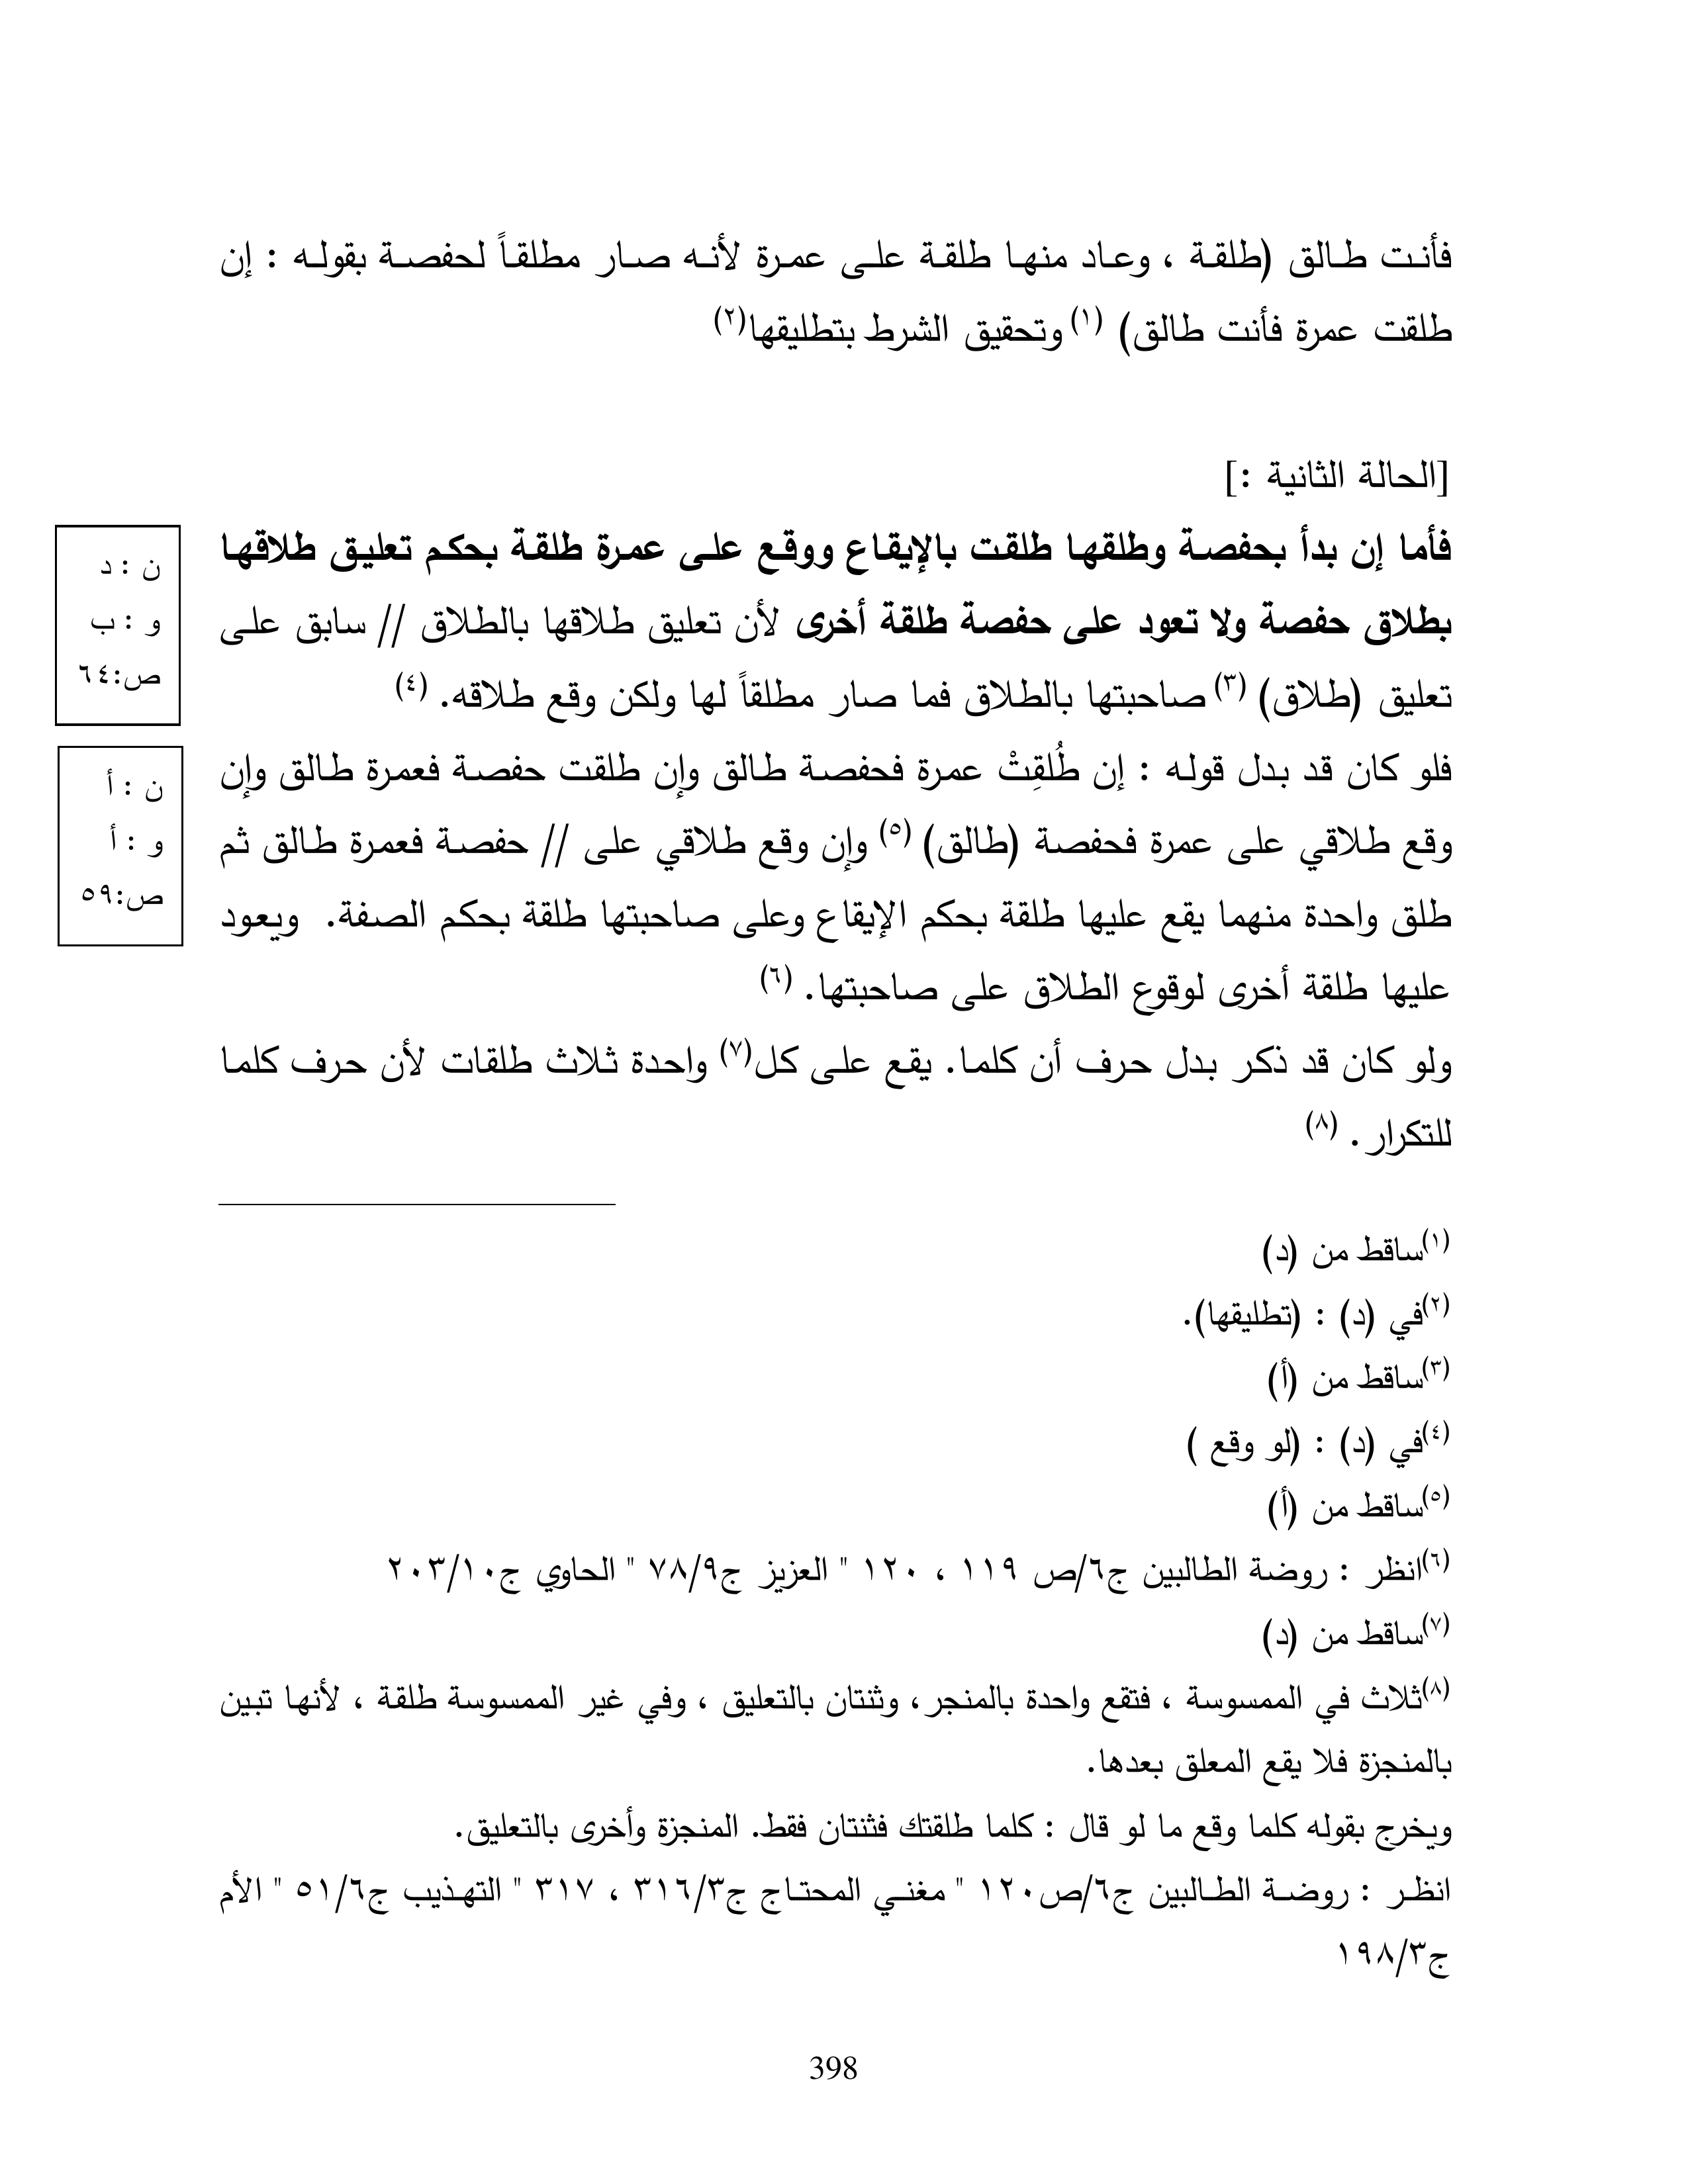 فأنت طالق (طلقة ، وعاد منها طلقة على عمرة لأنه صار مطلقاً لحفصة بقوله : إن
طلقت عمرة فأنت طالق) (١) وتحقيق الشرط بتطليقها(٢)
[الحالة الثانية :]
فأما إن بدأ بحفصة وطلقها طلقت بالإيقاع ووقع على عمرة طلقة بحكم تعليق طلاقها
بطلاق حفصة ولا تعود على حفصة طلقة أخرى لأن تعليق طلاقها بالطلاق // سابق على
تعليق (طلاق) (٣) صاحبتها بالطلاق فما صار مطلقاً لها ولكن وقع طلاقه. (٤)
فلو كان قد بدل قوله : إن طُلقِتْ عمرة فحفصة طالق وإن طلقت حفصة فعمرة طالق وإن
وقع طلاقي على عمرة فحفصة (طالق) (٥) وإن وقع طلاقي على // حفصة فعمرة طالق ثم
طلق واحدة منهما يقع عليها طلقة بحكم الإيقاع وعلى صاحبتها طلقة بحكم الصفة. ويعود
عليها طلقة أخرى لوقوع الطلاق على صاحبتها. (٦)
ولو كان قد ذكر بدل حرف أن كلما. يقع على كل(٧) واحدة ثلاث طلقات لأن حرف كلما
للتكرار. (٨)
ن : د
و : ب
ص:٦٤
ن : أ
و : أ
ص:٥٩
(١)ساقط من (د)
(٢)في (د) : (تطليقها).
(٣)ساقط من (أ)
(٤)في (د) : (لو وقع )
(٥)ساقط من (أ)
(٦)انظر : روضة الطالبين ج٦/ص ١١٩ ، ١٢٠ " العزيز ج٧٨/٩ " الحاوي ج٢٠٣/١٠
(٧)ساقط من (د)
(٨)ثلاث في الممسوسة ، فتقع واحدة بالمنجر، وثنتان بالتعليق ، وفي غير الممسوسة طلقة ، لأنها تبين
بالمنجزة فلا يقع المعلق بعدها.
ويخرج بقوله كلما وقع ما لو قال : كلما طلقتك فثنتان فقط. المنجزة وأخرى بالتعليق.
انظر : روضة الطالبين ج٦/ص١٢٠ " مغني المحتاج ج٣١٦/٣ ، ٣١٧ " التهذيب ج٥١/٦ " الأم
ج١٩٨/٣
398